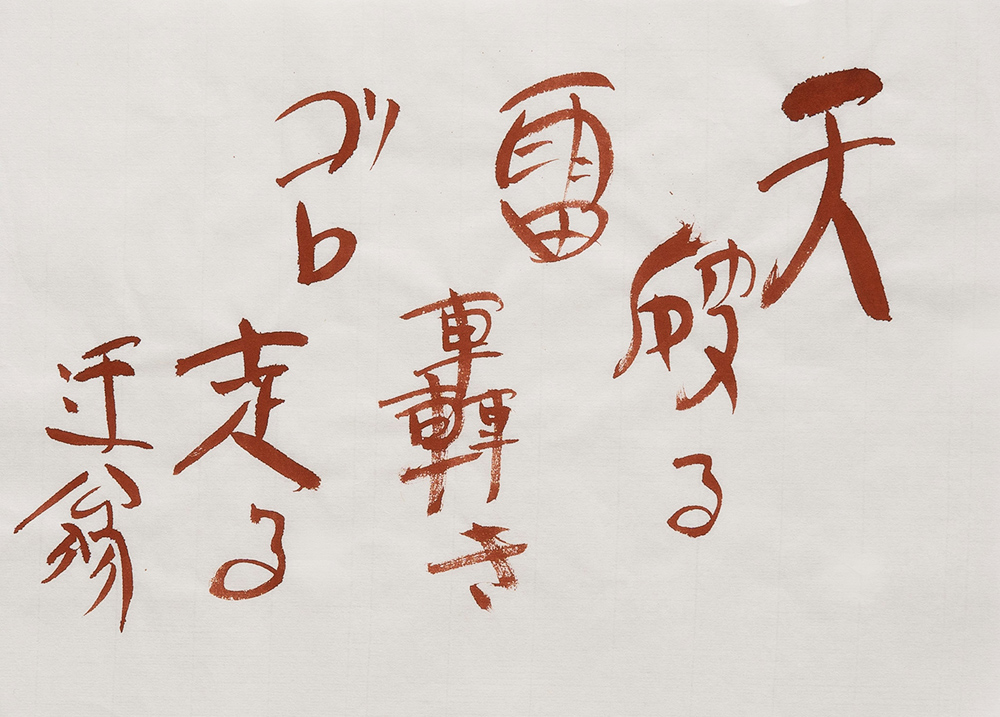 天破る
雷轟き
ゴロ走る
迂翁